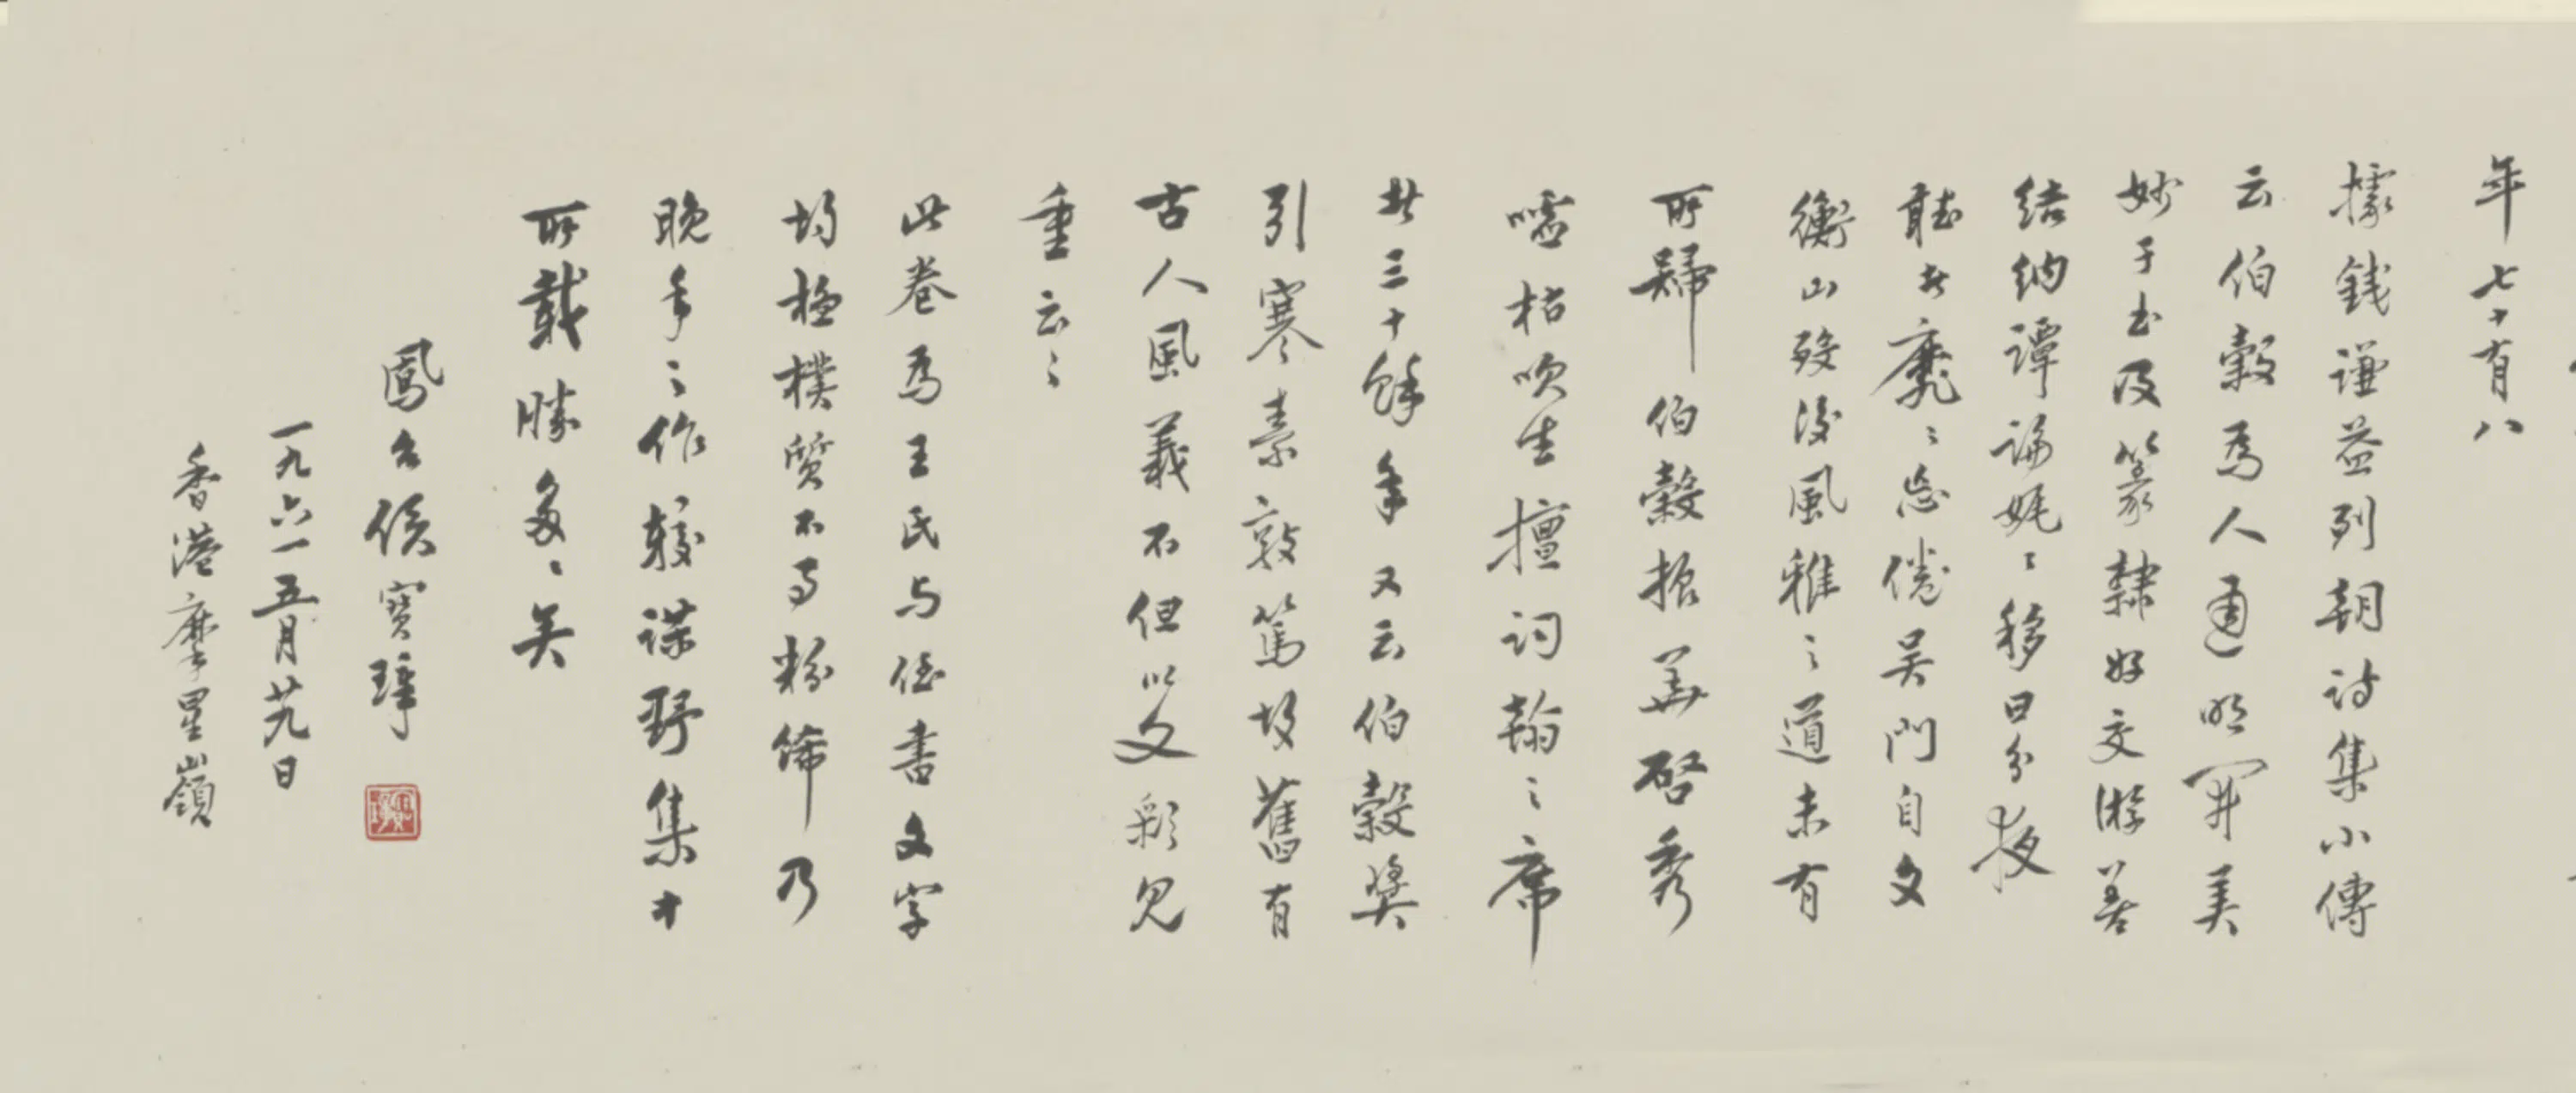 年七十有八
據錢謙益列朝詩集小傳
云伯穀為人通明開美
妙于書及篆隸好交游善
結納譚論娓〻移日分夜
聽者靡〻忘倦吳門自文
衡山歿後風雅之道未有
所歸伯穀振華啓秀
噓枯吹生擅詞翰之席
者三十餘年又云伯穀獎
引寒素敦篤故舊有
古人風義不但以文彩見
重云〻
此卷為王氏与侄書文字
均極樸質不事粉飾乃
晚年之作較謀野集中
所載勝多〻矣
鳳台侯寶璋
一九六一五月廿九日
香港摩星嶺